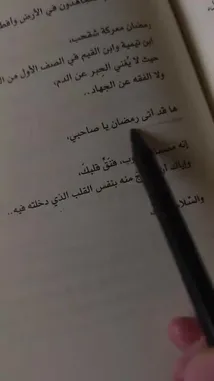 المجاهدون في الأرض وأفط
رمضان معركة شقحب،
ابن تيمية وابن القيم في الصف الأول من ال
حيث لا يُغني الحِبر عن الدم،
ولا الفقه عن الجهاد..
ها قد أتى رمضان يا صاحبي،
إنه فنقِّ قلبك،
وإياك منه بنفس القلب الذي دخلته فيه..
والسّلام